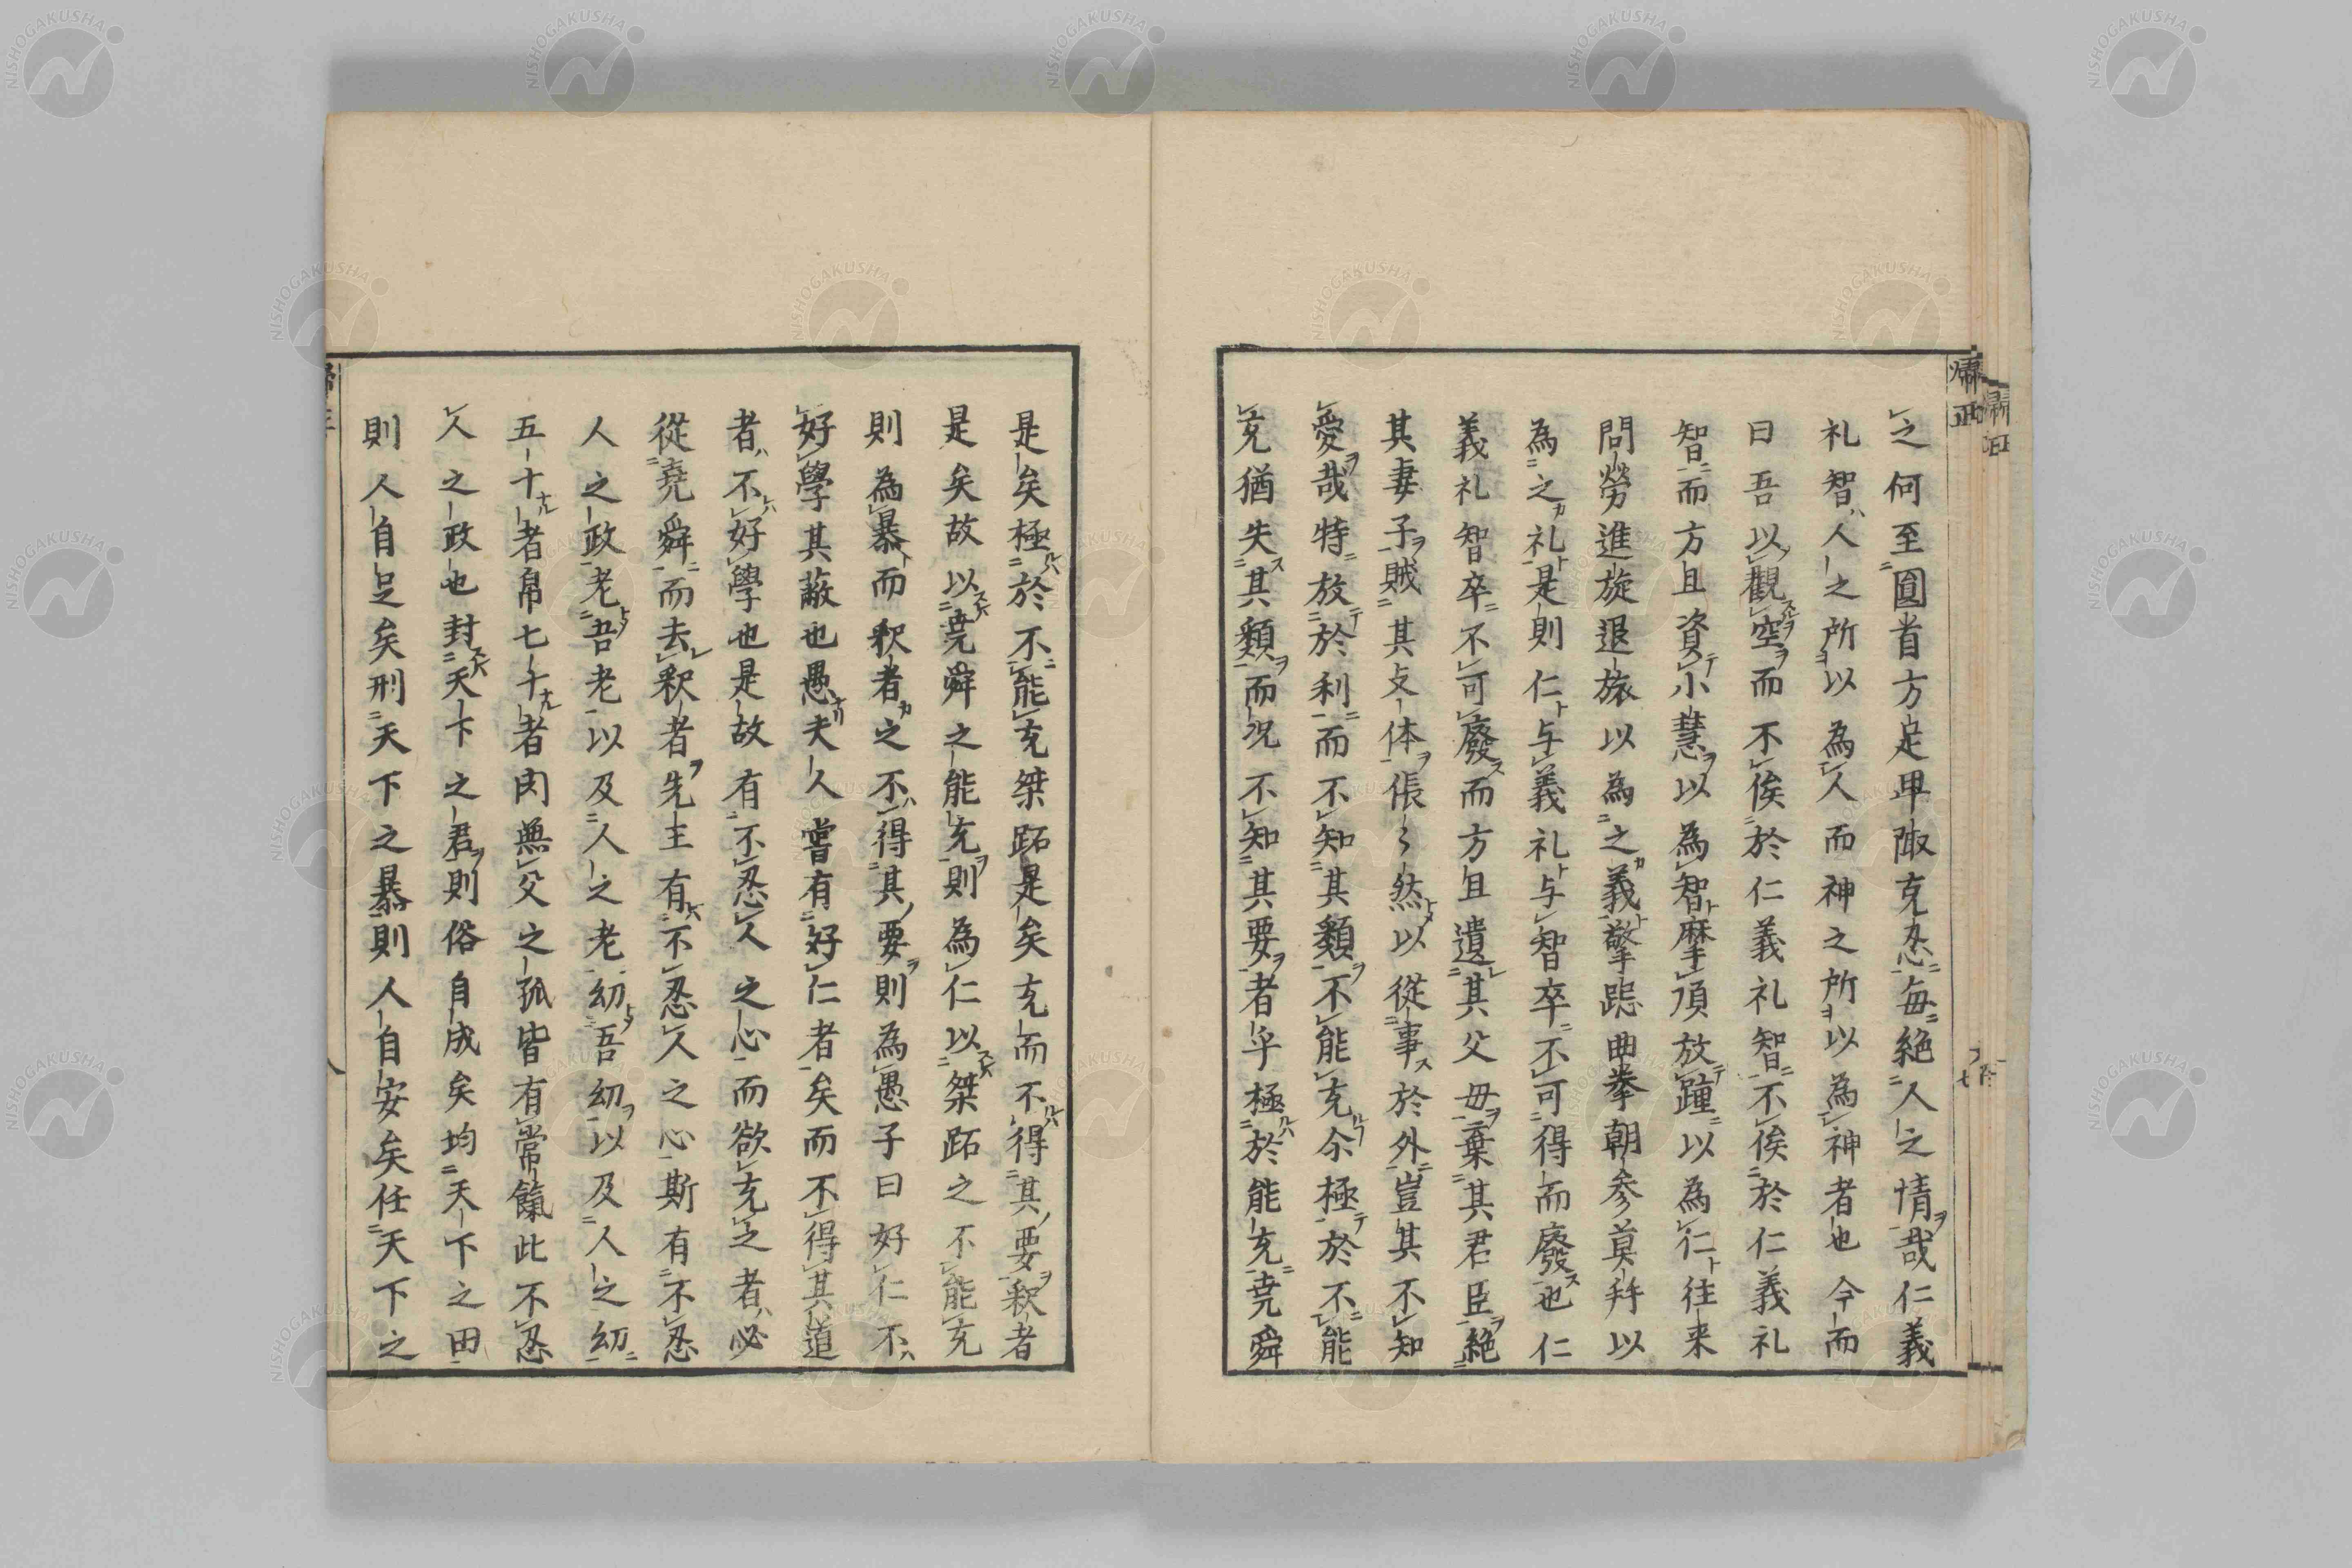 之何至圓首方足卑陬克忍每絶人之情哉仁義
礼智人之所以為人而神之所以為神者也今而
曰吾以觀空而不俟於仁義礼智不俟於仁義礼
智而方且資小慧以為智摩頂放踵以為仁往来
問勞進旋退旅以為之義擎跽曲拳朝参莫拜以
為之礼是則仁与義礼与智卒不可得而廢也仁
義礼智卒不可廢而方且遺其父母棄其君臣絶
其妻子賊其支体倀〻然以從事於外豈其不知
愛哉特放於利而不知其類不能充余極於不能
充猶失其類而況不知其要者乎極於能充堯舜
是矣極於不能充桀跖是矣充而不得其要釈者
是矣故以堯舜之能充則為仁以桀跖之不能充
則為暴而釈者之不得其要則為愚子曰好仁不
好學其蔽也愚夫人嘗有好仁者矣而不得其道
者不好學也是故有不忍人之心而欲充之者必
從堯舜而去釈者先王有不忍人之心斯有不忍
人之政老吾老以及人之老幼吾幼以及人之幼
五十者帛七十者肉無父之孤皆有常餼此不忍
人之政也封天下之君則俗自成矣均天下之田
則人自足矣刑天下之暴則人自安矣任天下之